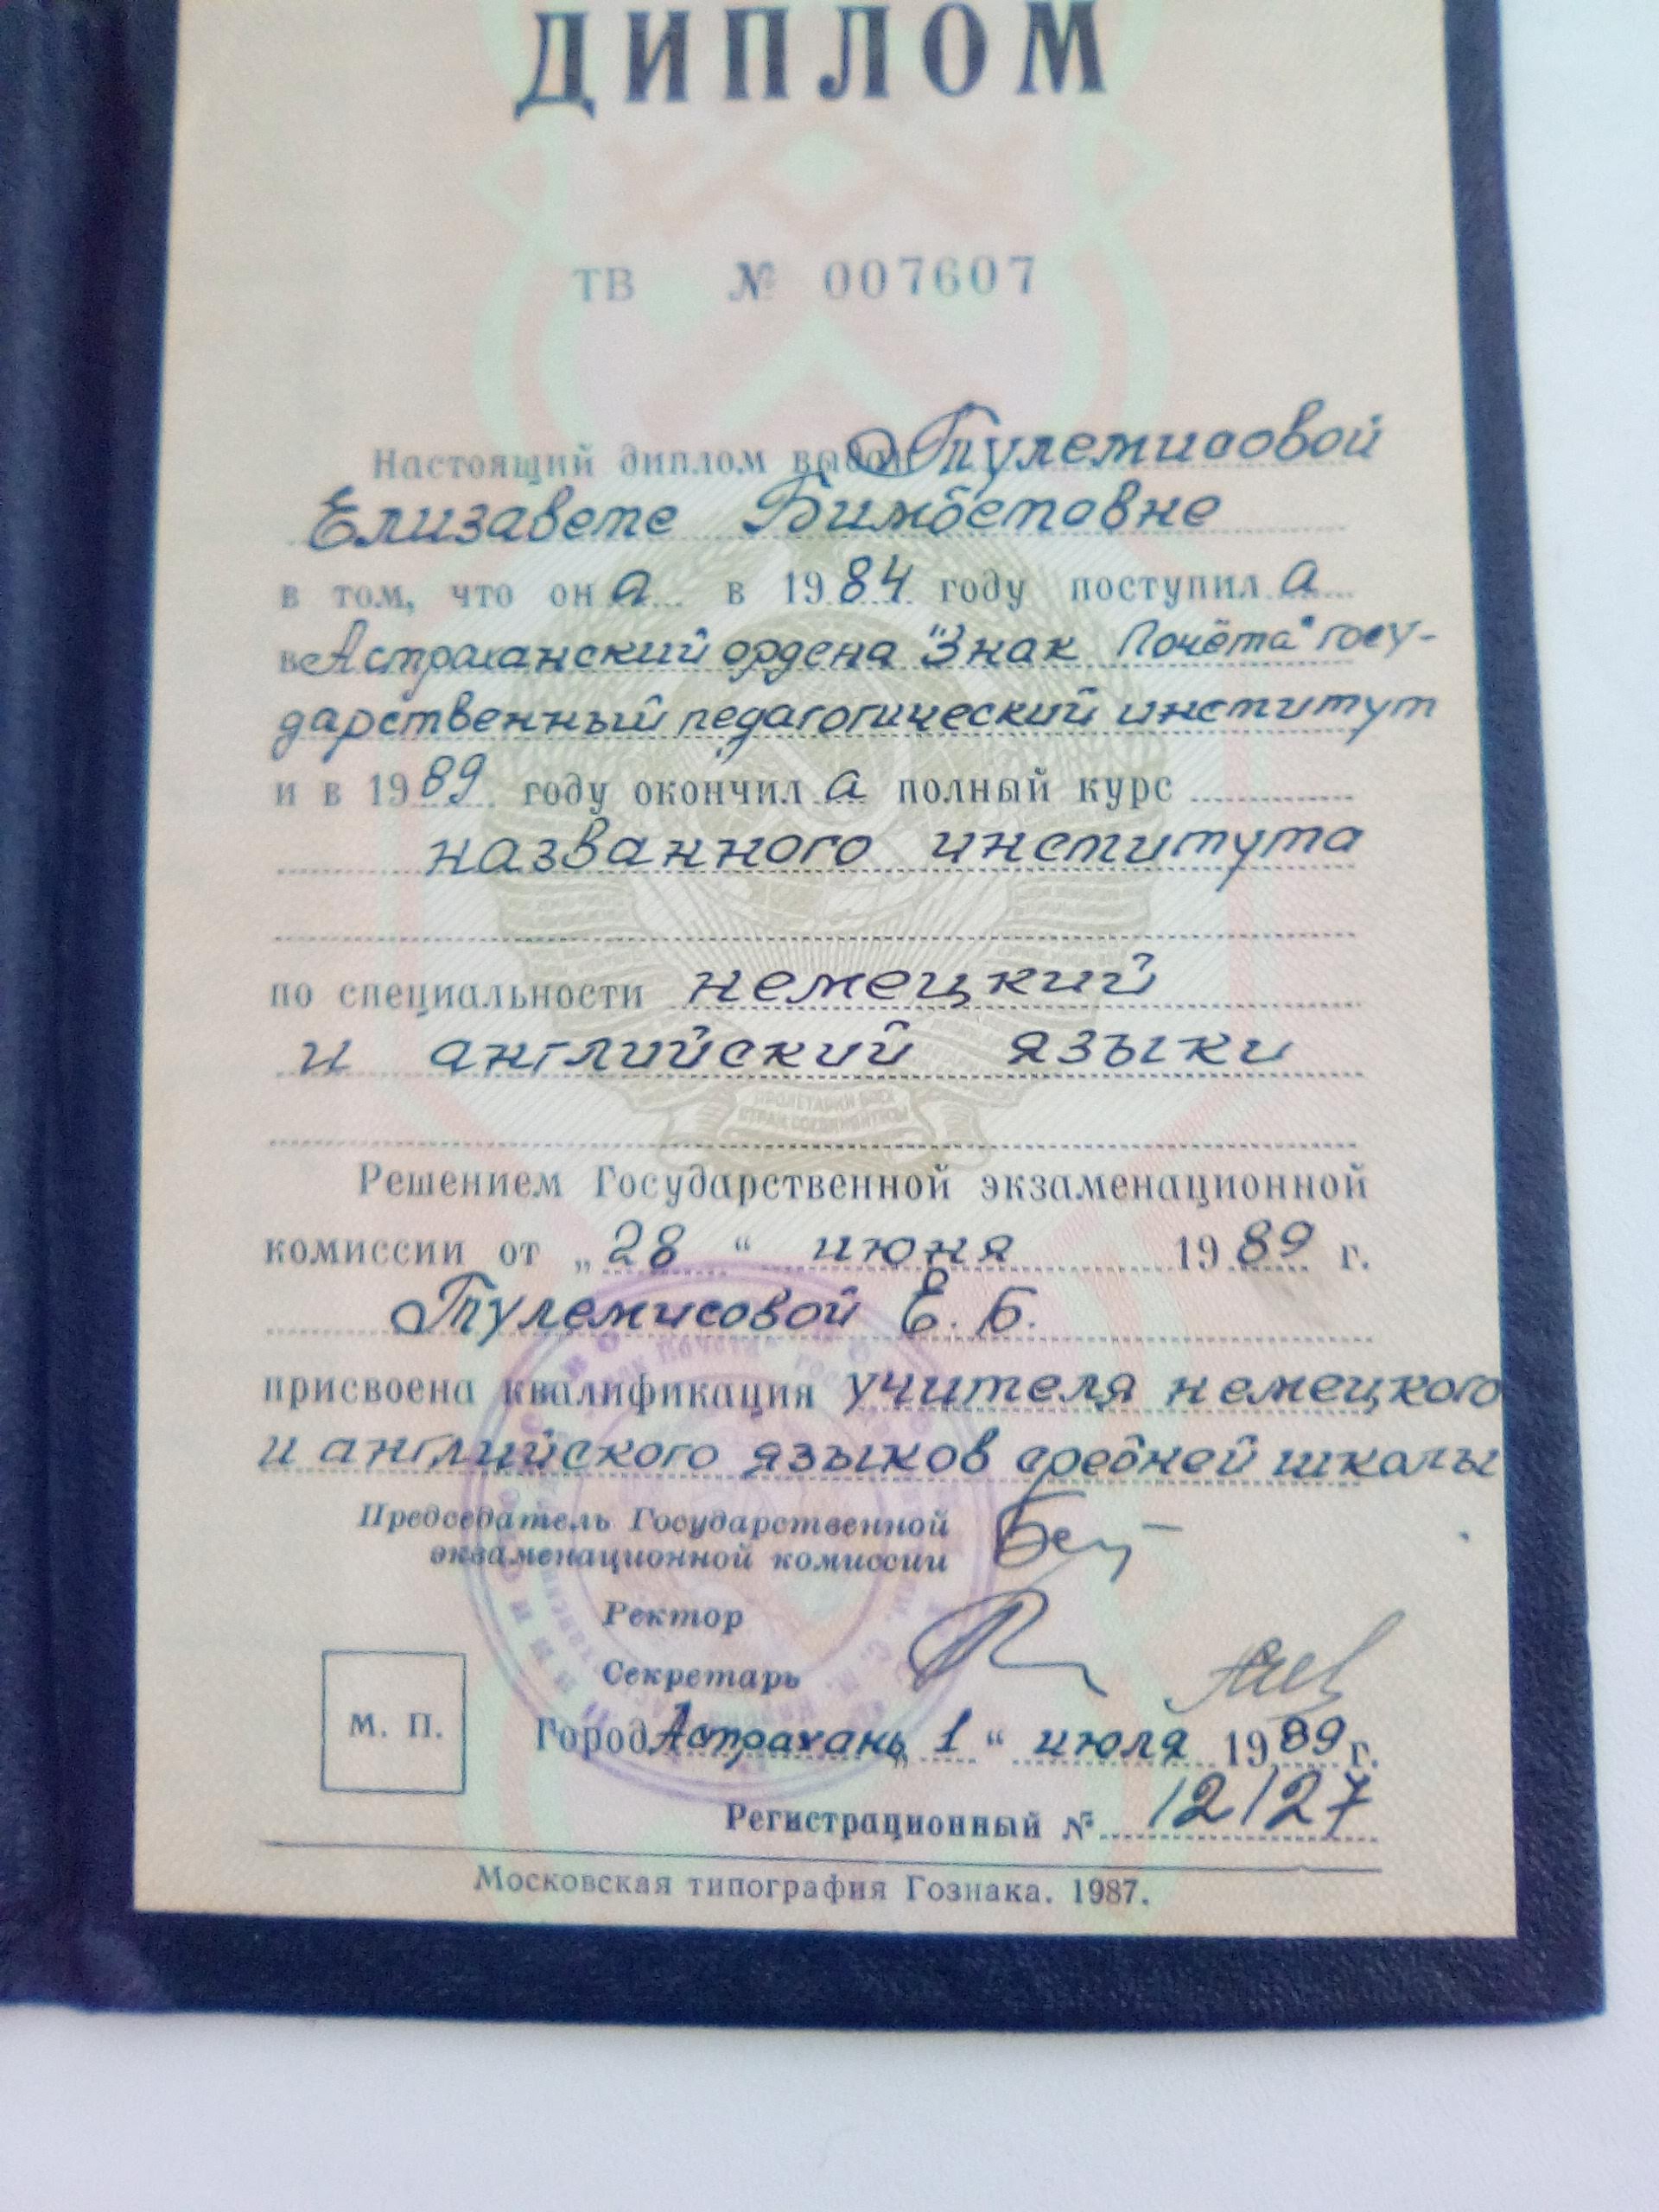 ДИПЛОМ
ТВ № 007607
Настоящий диплом выдан Тулемисовой
Елизавете Бимбетовне
в том, что она в 1984 году поступила
в Астраханский ордена "Знак Почёта" госу-
дарственный педагогический институт
и в 1989 году окончила полный курс
названного института
по специальности немецкий
и английский языки
ПРОЛЕТАРИИ ВСЕХ
СТРАН, СОЕДИНЯЙТЕСЬ!
Решением Государственной экзаменационной
комиссии от „28“ июня 1989 г.
Тулемисовой Е. Б.
присвоена квалификация учителя немецкого
и английского языков средней школы
Председатель Государственной
экзаменационной комиссии
Ректор
Секретарь
М. П.
Город Астрахань „1“ июля 1989 г.
Регистрационный № 12127
Московская типография Гознака. 1987.